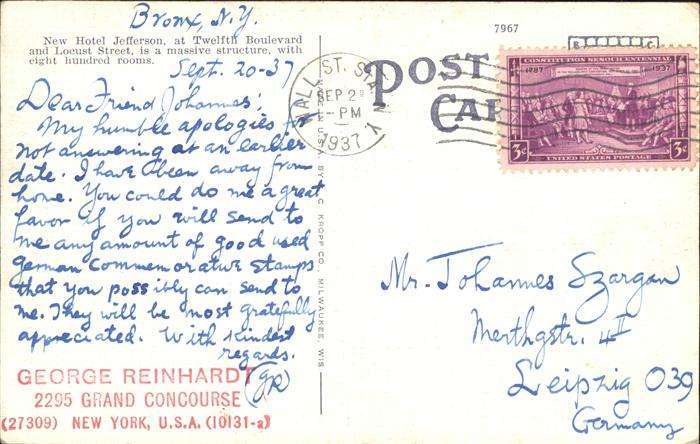 Bronx, N.Y.
New Hotel Jefferson, at Twelfth Boulevard
and Locust Street, is a massive structure, with
eight hundred rooms.
Sept. 20-37
Dear Friend Johannes;
My humble apologies for
not answering at an earlier
date. I have been away from
home. You could do me a great
favor if you will send to
me any amount of good used
German Commemorative Stamps
that you possibly can send to
me. They will be most gratefully
appreciated. With kindest
regards.
(GR)
GEORGE REINHARDT
2295 GRAND CONCOURSE
(27309) NEW YORK, U.S.A. (10131-a)
MADE IN U.S.A. BY E. C. KROPP CO., MILWAUKEE, WIS.
7967
POST
CAR
WALL ST. STA.
SEP 2
-PM
1937
N Y
CONSTITUTION SESQUICENTENNIAL
1787 1937
3¢ UNITED STATES POSTAGE 3¢
Mr. Johannes Szargan
Merthgstr. 4 II
Leipzig O39
Germany